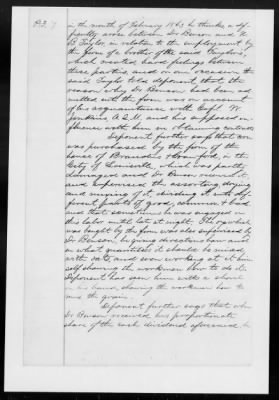 P3. 7
in the month of February 1863 he thinks a dif-
ficulty arose between Dr Benson and H
B Taylor in relation to the employment by
the firm of a brother of the said Taylor's
which created hard feelings between
these parties, and on one occasion the
said Taylor told deponent that the
reason why Dr Benson had been ad
mitted with the firm was on account
of his acquaintance with Capt W.
Jenkins, A.Q.M. and his supposed in-
fluence with him in obtaining contracts
Deponent further says that corn
was purchased by the firm of the
house of Brandeis & Crawford, in the
City of Louisville which was partly
damaged and Dr Benson received it,
and supervised the assorting, drying
and mixing of it, dividing it into dif
ferent grades of good, common & bad
and that sometimes he was engaged in
this labor until late at night. The corn which
was bought by the firm was also supervised by
Dr Benson, he giving directions how and
in what quantities it should be mixed
with oats, and even working at it him
self showing the workmen how to do it.
Deponent has seen him with a shovel
in his hand, showing the workmen how to
mix the grain.
Deponent further says that when
Dr Benson received his proportionate
share of the cash dividend aforesaid, he